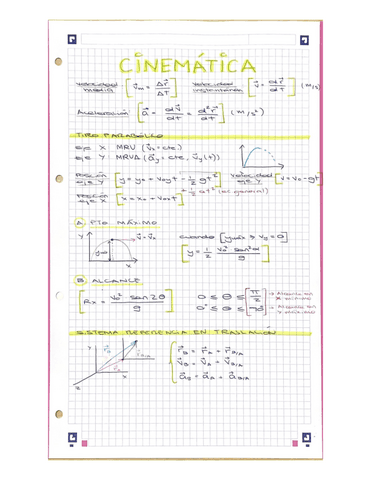 CINEMÁTICA
velocidad media [v⃗m = Δr⃗/ΔT] velocidad instantánea [v⃗ = dr⃗/dT] (m/s)
Aceleración [a⃗ = dv⃗/dT = d²r⃗/dT²] (m/s²)
TIRO PARABÓLICO
eje X MRU (v⃗x = cte)
eje Y MRUA (a⃗y = cte, v⃗y(t))
Posición eje Y [y = y₀ + v₀yt - 1/2 gt²] velocidad eje Y [v = v₀ - gt]
Posición eje X [x = x₀ + v₀xt] + 1/2 at² (en general)
A PTO MÁXIMO
Y v⃗ = v⃗x cuando [ymáx → vy = 0]
X [y = 1/2 v₀² sen²θ/g]
B ALCANCE
[Rx = v₀² sen2θ/g] 0 ≤ θ ≤ [π/2] → Alcance en x mínimo
0 ≤ θ ≤
SISTEMA REFERENCIA EN TRASLACIÓN
Y Y r⃗B = r⃗A + r⃗B/A
X v⃗B = v⃗A + v⃗B/A
Z X a⃗B = a⃗A + a⃗B/A